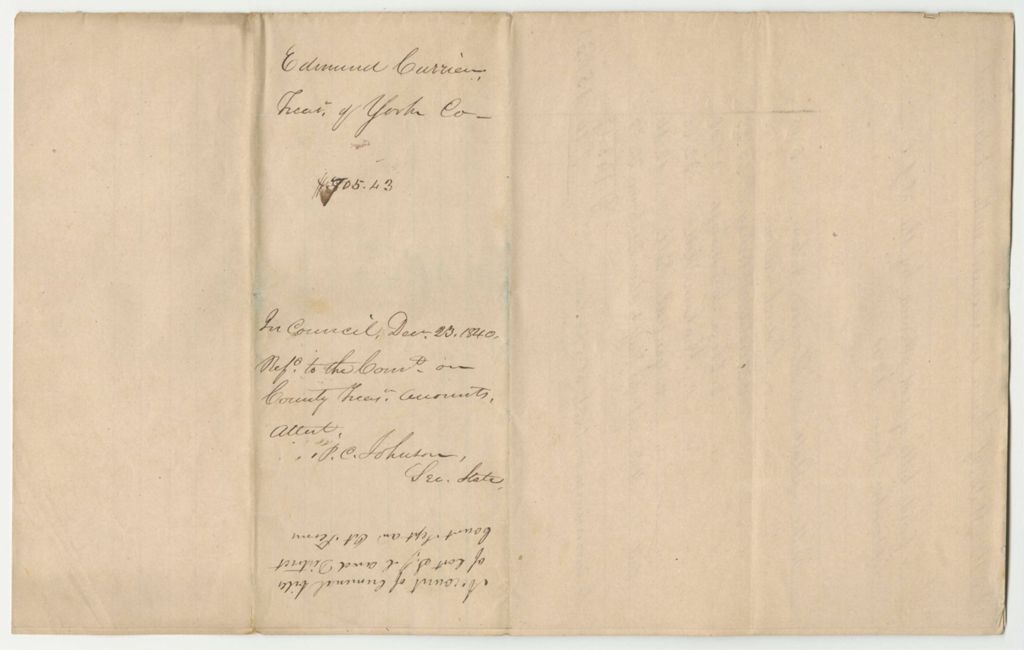 Edmund Currier,
Treasr. of York Co—
$ 05.43
In Council, Decr. 23. 1840.
Refd. to the Comtt. on
County Treasr. accounts,
Attest,
P. C. Johnson,
Sec. State.
Account of Criminal bills
of Cost S. J. C and District
Court Sept an Oct Terms